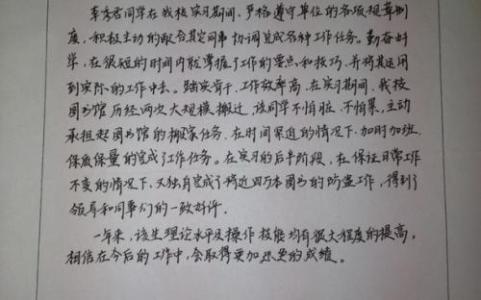 李秀君同学在我校实习期间,严格遵守单位的各项规章制
度,积极主动的配合其它同事协调完成各种工作任务。勤奋好
学,在很短的时间内就掌握了工作的要点和技巧,并将其运用
到实际的工作中去。踏实肯干,工作效率高。在实习期间,我校
图书馆历经两次大规模搬迁,该同学不怕脏、不怕累,主动
承担起图书馆的搬家任务。在时间紧迫的情况下,加时加班,
保质保量的完成了工作任务。在实习的后半阶段,在保证日常工作
不变的情况下,又独自完成了将近四万本图书的防盗工作,得到了
领导和同事们的一致好评。
一年来,该生理论水平及操作技能均有很大程度的提高,
相信在今后的工作中,会取得更加的成绩。